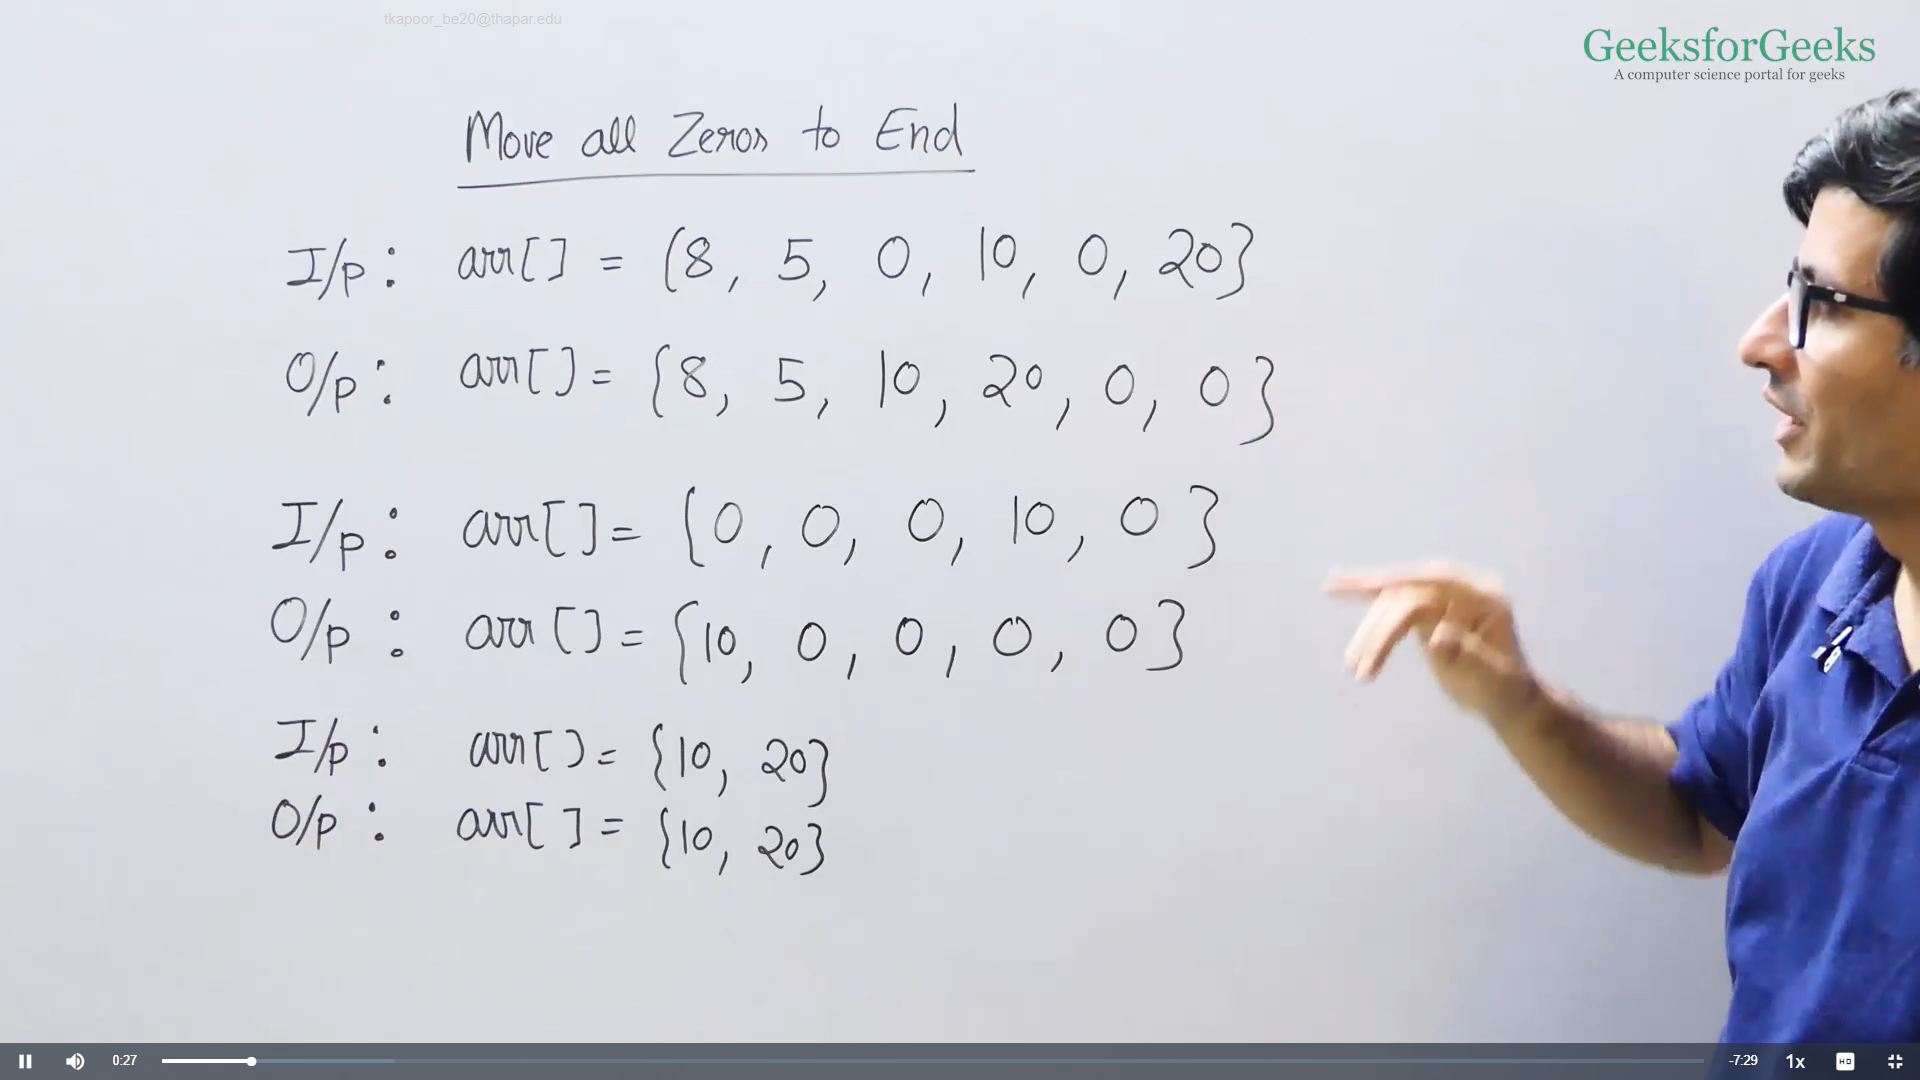 tkapoor_be20@thapar.edu
GeeksforGeeks
A computer science portal for geeks
Move all Zeros to End
I/p : arr[] = (8, 5, 0, 10, 0, 20}
O/p : arr[] = {8, 5, 10, 20, 0, 0}
I/p : arr[] = {0, 0, 0, 10, 0}
O/p : arr[] = {10, 0, 0, 0, 0}
I/p : arr[] = {10, 20}
O/p : arr[] = {10, 20}
0:27
-7:29
1x
HD